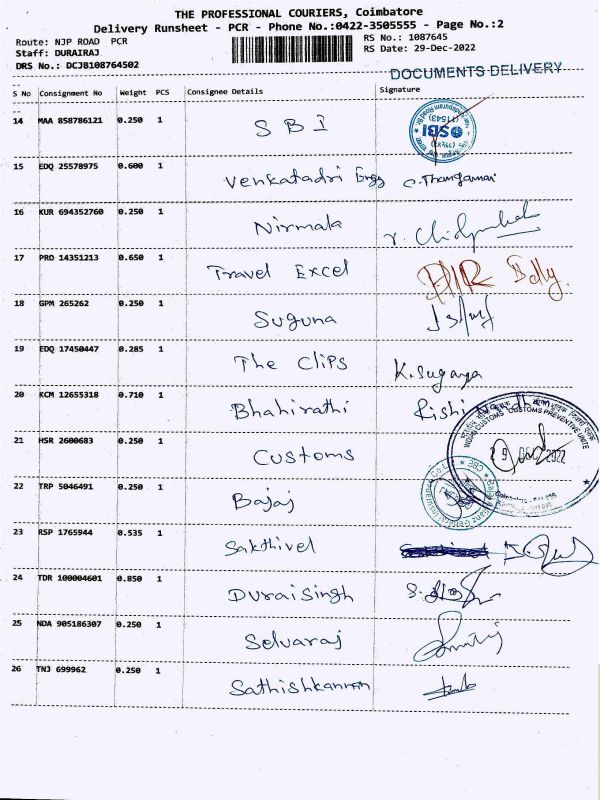 THE PROFESSIONAL COURIERS, Coimbatore
Delivery Runsheet - PCR - Phone No.:0422-3505555 - Page No.:2
Route: NJP ROAD PCR
Staff: DURAIRAJ
DRS No.: DCJB108764502
RS No.: 1087645
RS Date: 29-Dec-2022
DOCUMENTS DELIVERY
S No Consignment No Weight PCS Consignee Details Signature
14 MAA 858786121 0.250 1 SBI
SBI
15 EDQ 25578975 0.600 1 Venkatadri Engg C. Thangamani
16 KUR 694352760 0.250 1 Nirmala
17 PRO 14351213 0.650 1 Travel Excel
18 GPM 265262 0.250 1 Suguna
19 EDQ 17450447 0.285 1 The Clips K. Suganya
20 KCM 12655318 0.710 1 Bhahirathi Rishi Nandhan
21 HSR 2600683 0.250 1 Customs
INDIAN CUSTOMS CUSTOMS PREVENTIVE UNIT
29 DEC 2022
22 TRP 5046491 0.250 1 Bajaj
23 RSP 1765944 0.535 1 Sakthivel
24 TDR 100004601 0.850 1 Duraisingh
25 NDA 905186307 0.250 1 Selvaraj
26 TNJ 699962 0.250 1 Sathishkannan